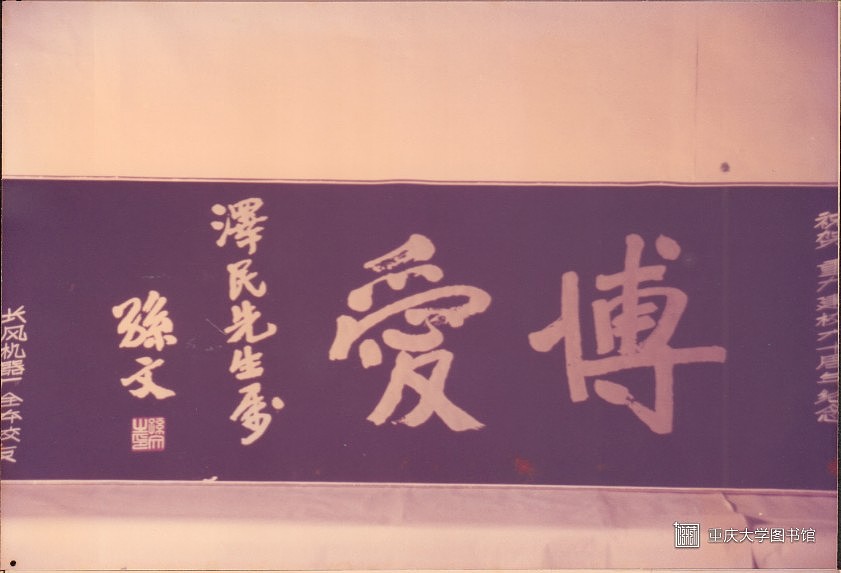 祝贺重大建校六十周年纪念
博愛
澤民先生屬
孫文
长风机器厂全体校友
重庆大学图书馆